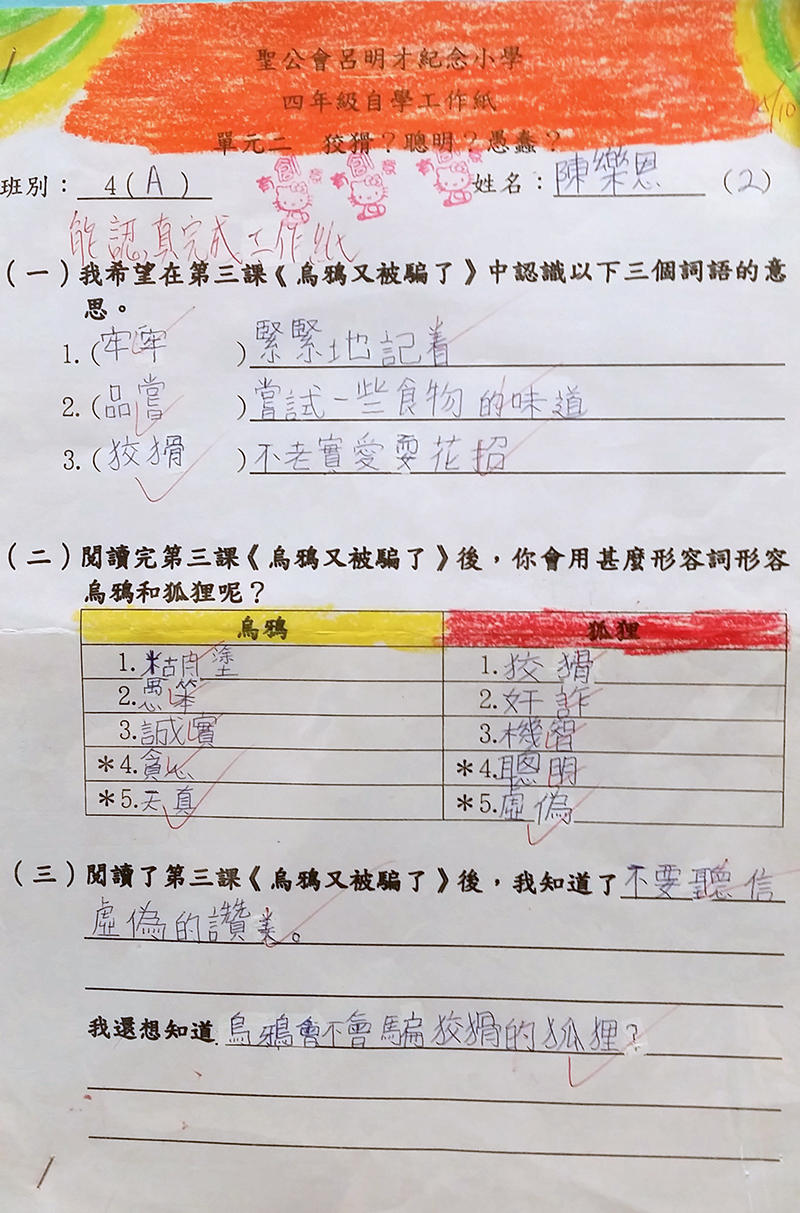 聖公會呂明才紀念小學
四年級自學工作紙
25/10
單元二 狡猾？聰明？愚蠢？
班別： 4(A) 姓名：陳樂恩 (2)
能認真完成工作紙
(一)我希望在第三課《烏鴉又被騙了》中認識以下三個詞語的意
思。
1.(牢牢)緊緊地記着
2.(品嘗)嘗試一些食物的味道
3.(狡猾)不老實愛耍花招
(二)閱讀完第三課《烏鴉又被騙了》後，你會用甚麼形容詞形容
烏鴉和狐狸呢？
烏鴉 狐狸
1.糊塗 1.狡猾
2.愚笨 2.奸詐
3.誠實 3.機智
*4.貪心 *4.聰明
*5.天真 *5.虛偽
(三)閱讀了第三課《烏鴉又被騙了》後，我知道了不要聽信
虛偽的讚美。
我還想知道烏鴉會不會騙狡猾的狐狸？